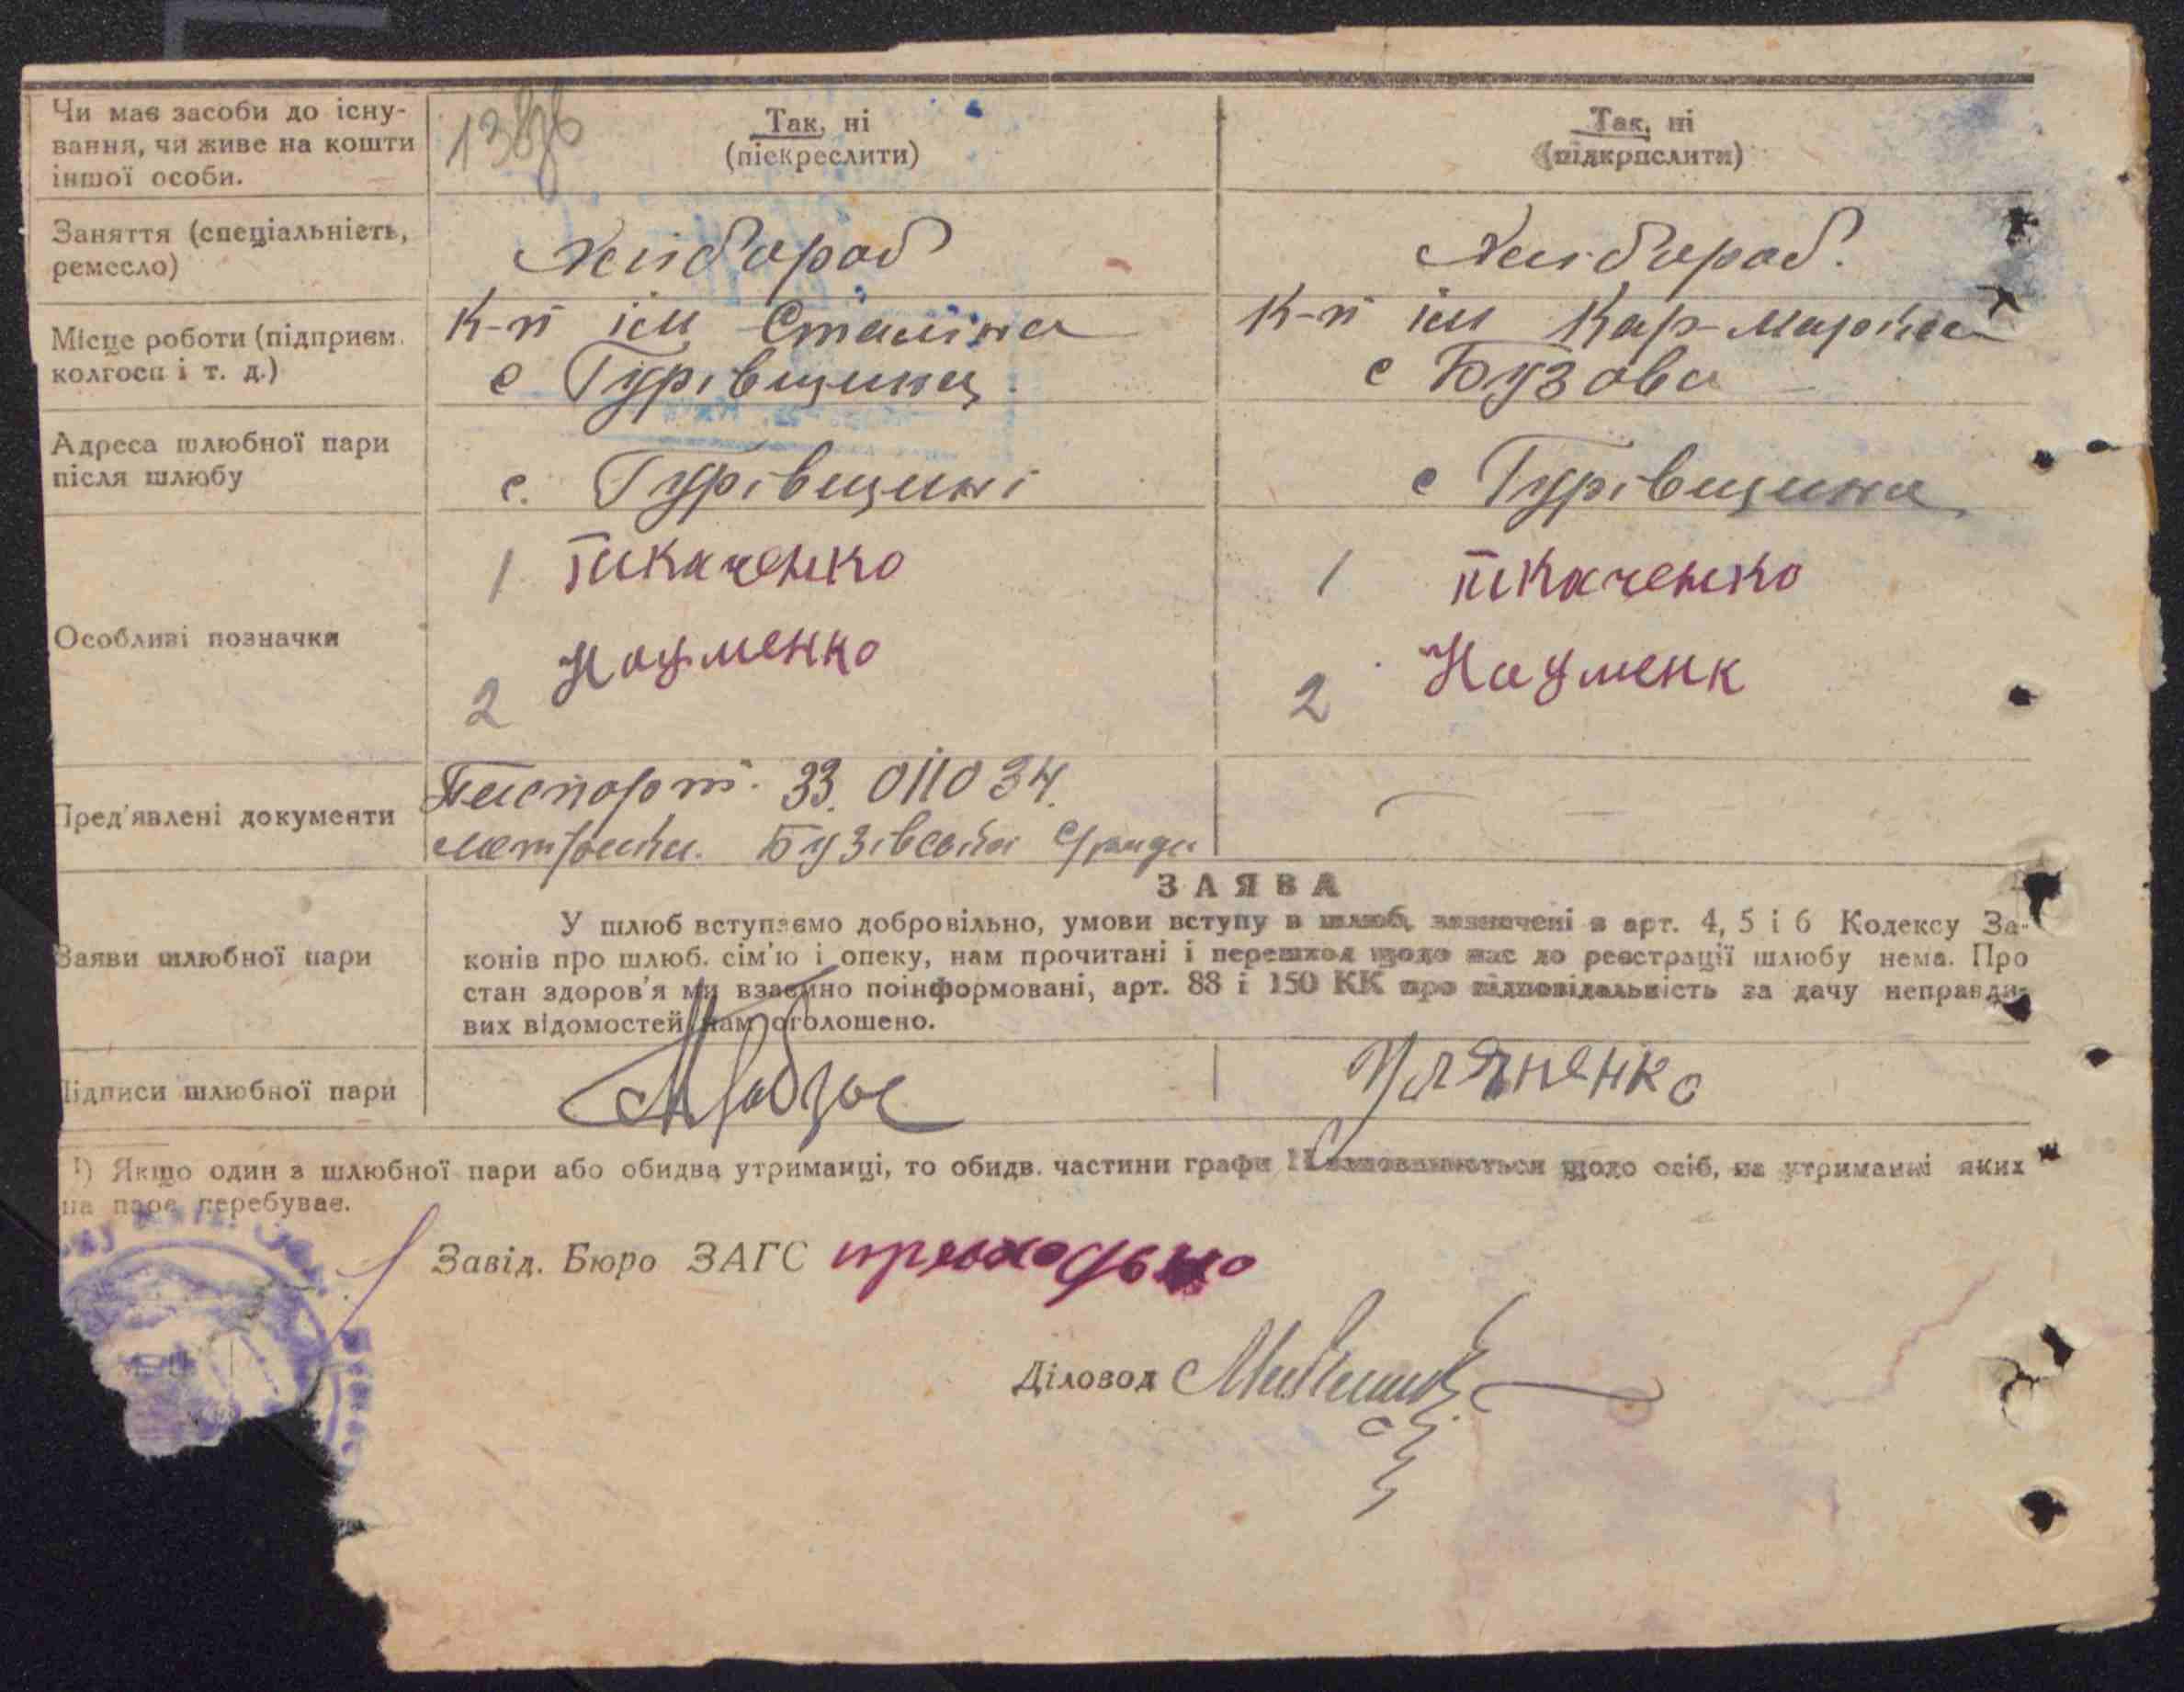 Чи має засоби до існу-
вання, чи живе на кошти
іншої особи.
Так, ні
(піекреслити)
Так, ні
(підкрпслити)
Заняття (спеціальність,
ремесло)
Хлібороб
Хлібороб.
Місце роботи (підприєм.
колгосп і т. д.)
К-п ім Сталіна
с Гурівщина
К-п ім Кар-Маркса
с Бузова
Адреса шлюбної пари
після шлюбу
с. Гурівщині
с Гурівщина
Особливі позначки
1 Ткаченко
2 Науменко
1 Ткаченко
2 Науменк
Пред'явлені документи
Паспорт. 33. 011034.
метрики. Бузівської с/ради
Заяви шлюбної пари
ЗАЯВА
У шлюб вступаємо добровільно, умови вступу в шлюб, зазначені в арт. 4, 5 і 6 Кодексу За-
конів про шлюб. сім'ю і опеку, нам прочитані і перешкод щодо нас до реєстрації шлюбу нема. Про
стан здоров'я ми взаємно поінформовані, арт. 88 і 150 КК про відповідальність за дачу неправди-
вих відомостей нам оголошено.
Підписи шлюбної пари
1) Якщо один з шлюбної пари або обидва утриманці, то обидв. частини графи 11 заповнюються щодо осіб, на утриманні яких
на пара перебуває.
Завід. Бюро ЗАГС
Діловод